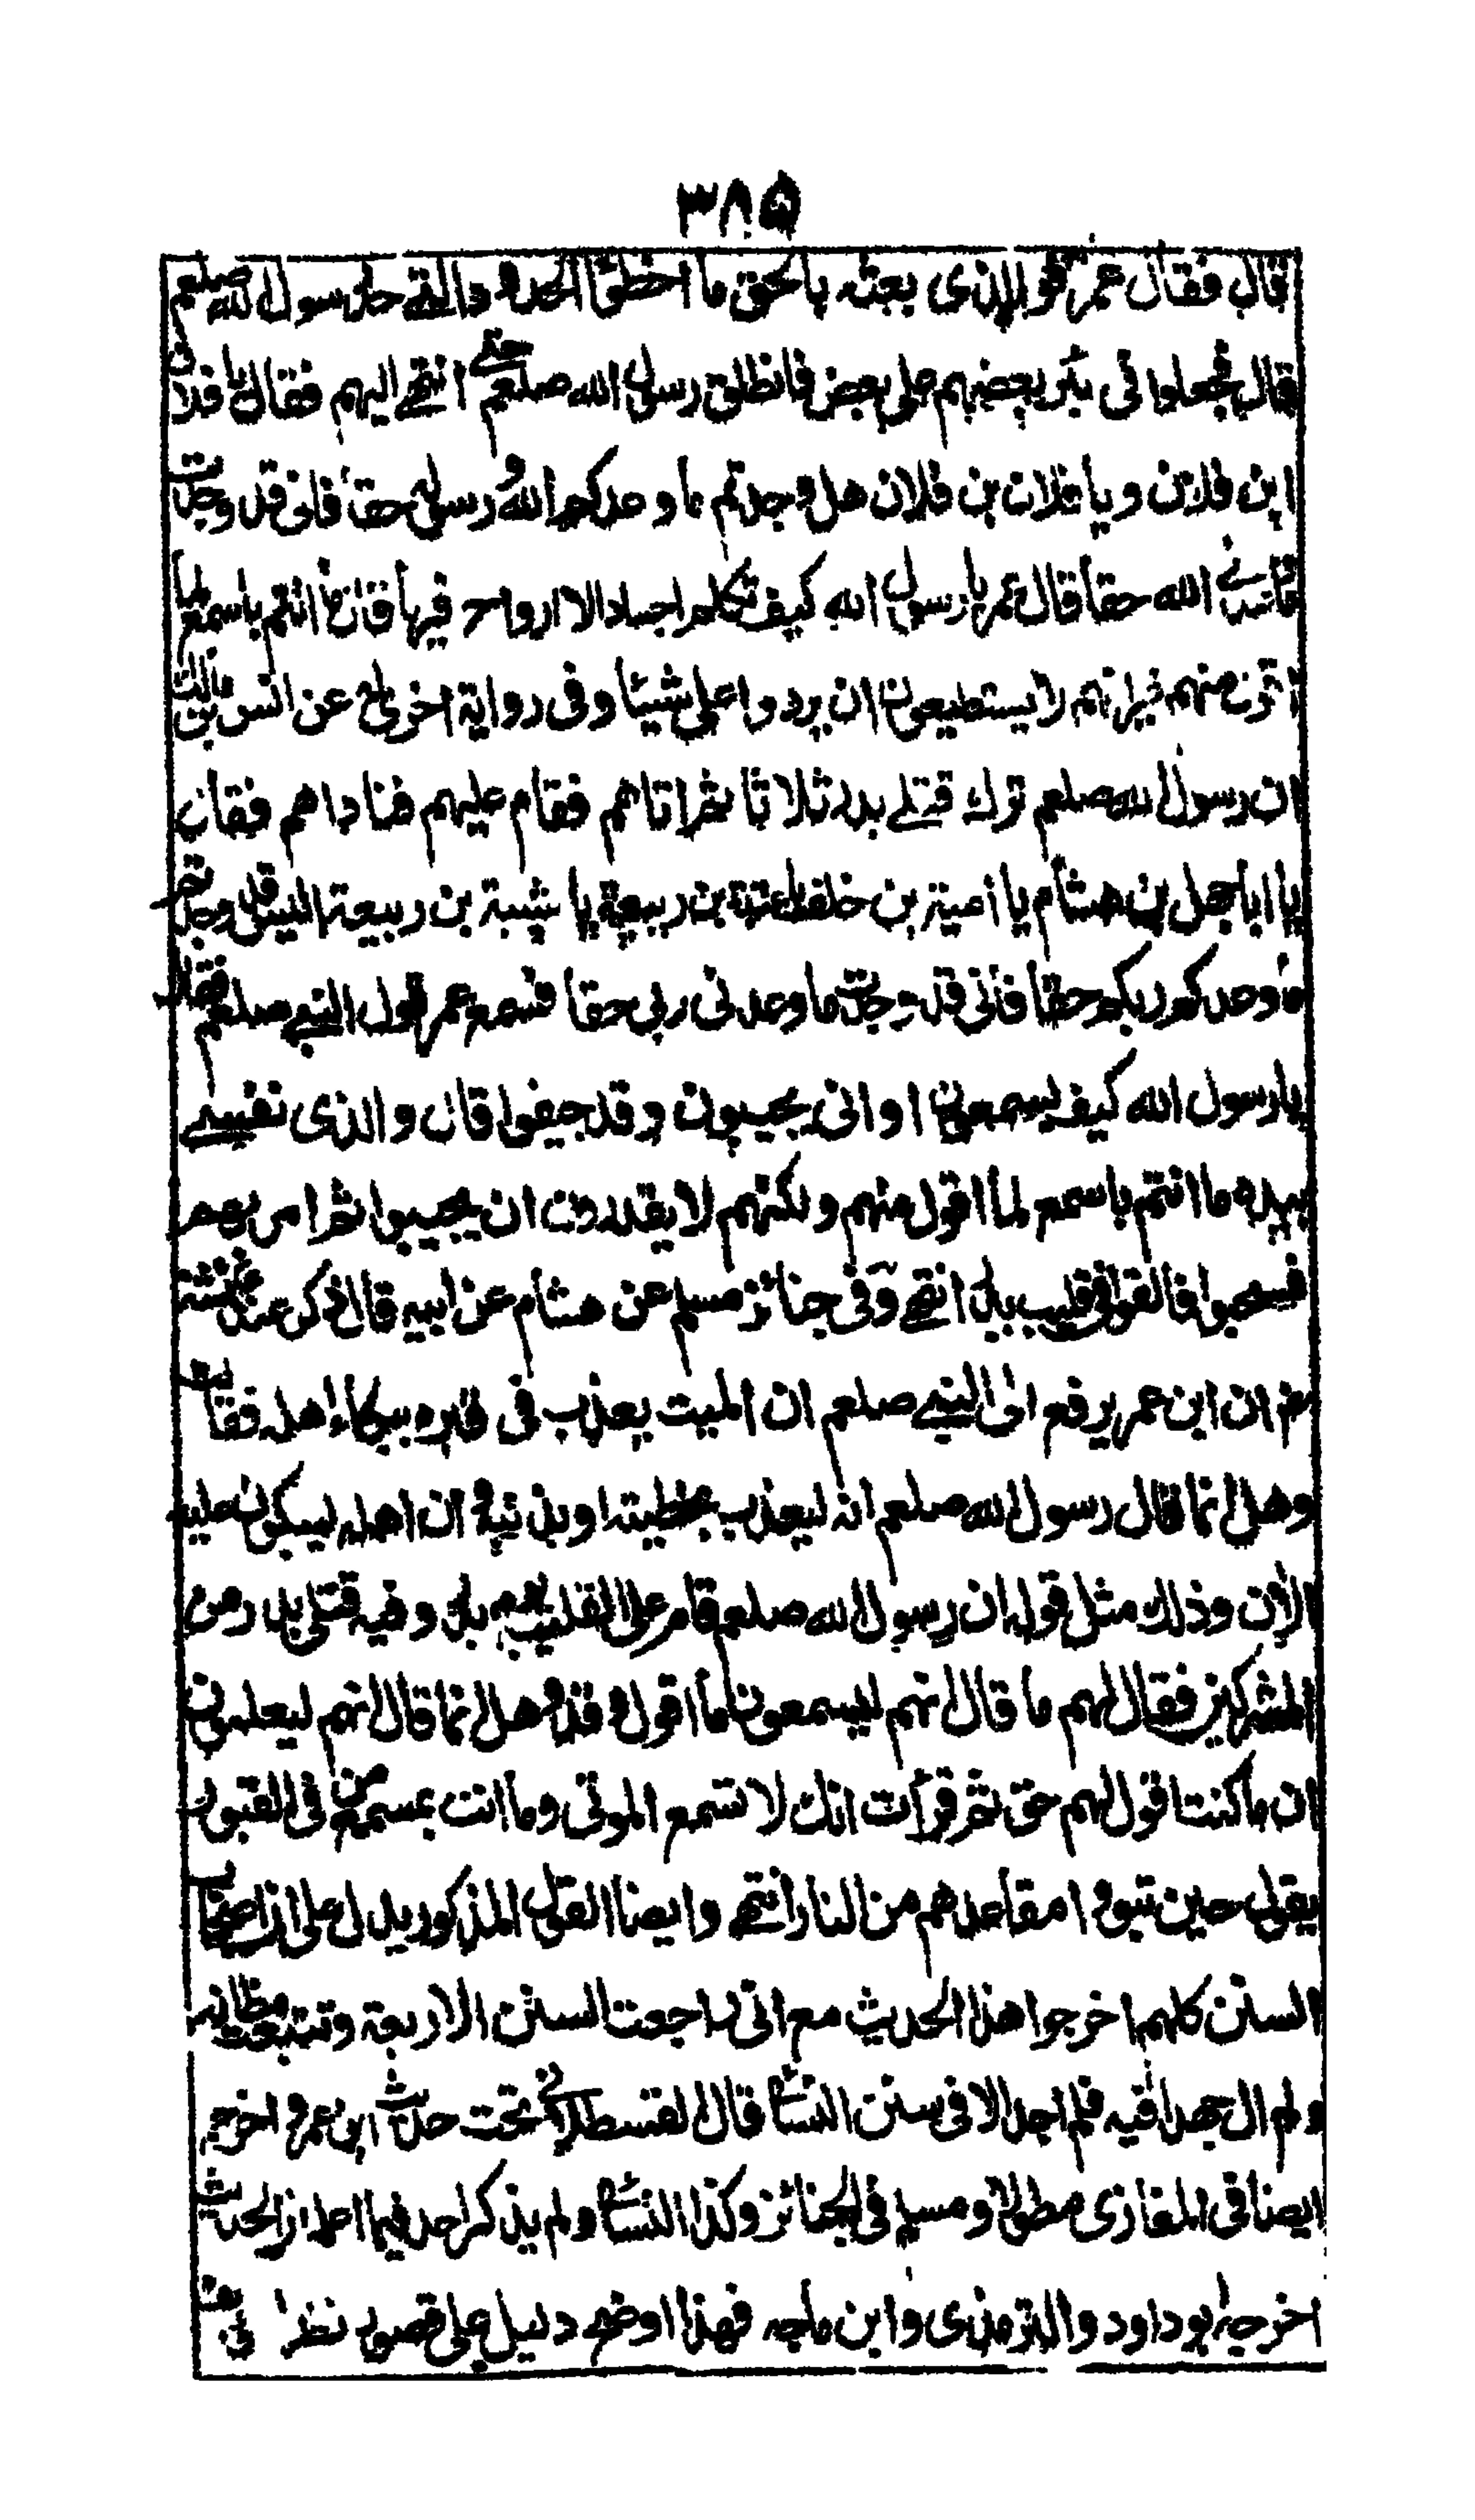 ٣٨٥
قال فقال عمر فوالذي بعثه بالحق ما اخطؤا الحدود التي حد رسول الله صلعم
قال فجعلوا في بئر بعضهم على بعض فانطلق رسول الله صلعم حتى انتهى اليهم فقال يا فلان
ابن فلان ويا فلان بن فلان هل وجدتم ما وعدكم الله ورسوله حقا فاني قد وجدت
ما وعدني الله حقا قال عمر يا رسول الله كيف تكلم اجسادا لا ارواح فيها قال ما انتم باسمع لما
اقول منهم غير انهم لا يستطيعون ان يردوا علي شيئا وفي رواية اخرى له عن انس بن مالك
ان رسول الله صلعم ترك قتلى بدر ثلاثا ثم اتاهم فقام عليهم فناداهم فقال
يا ابا جهل بن هشام يا امية بن خلف يا عتبة بن ربيعة يا شيبة بن ربيعة اليس قد وجدتم
ما وعدكم ربكم حقا فاني قد وجدت ما وعدني ربي حقا فسمع عمر قول النبي صلعم فقال
يا رسول الله كيف يسمعون او انى يجيبون وقد جيفوا قال والذي نفسي
بيده ما انتم باسمع لما اقول منهم ولكنهم لا يقدرون ان يجيبوا ثم امر بهم
فسحبوا فالقوا في قليب بدر انتهى وفي جنائز مسلم عن هشام عن ابيه قال ذكر عند عائشة
ان ابن عمر يرفع الى النبي صلعم ان الميت يعذب في قبره ببكاء اهله فقالت
وهل انما قال رسول الله صلعم انه ليعذب بخطيئته او بذنبه وان اهله ليبكون عليه
الآن وذلك مثل قوله ان رسول الله صلعم قام على القليب يوم بدر وفيه قتلى بدر من
المشركين فقال لهم ما قال انهم ليسمعون ما اقول وقد وهل انما قال انهم ليعلمون
ان ما كنت اقول لهم حق ثم قرأت انك لا تسمع الموتى وما انت بمسمع من في القبور
يقول حين تبوؤا مقاعدهم من النار انتهى وايضا القول المذكور يدل على ان اصحاب
السنن كلهم اخرجوا هذا الحديث مع اني راجعت السنن الاربعة وتتبعت مظانه
ولم ال جهدا فيه فلم اجد الا في سنن النسائي قال القسطلاني تحت حديث ابن عمر واخرجه
ايضا في المغازي مطولا ومسلم في الجنائز وكذا النسائي ولم يذكر احد فيما اعلم ان الحديث
اخرجه ابو داود والترمذي وابن ماجه فهذا اوضح دليل على قصور نظره في